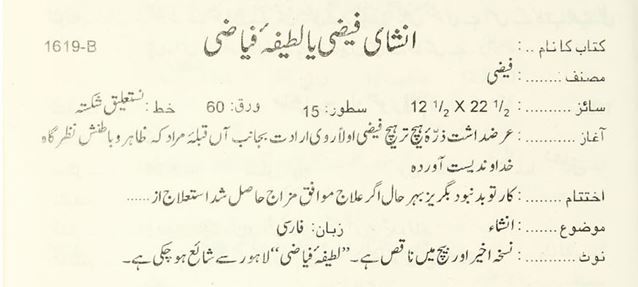 کتاب کا نام ..: انشای فیضی یا لطیفۂ فیاضی 1619-B
مصنف ........: فیضی
سائز ..........: 12 1/2 X 22 1/2 سطور: 15 ورق: 60 خط: نستعلیق شکستہ
آغاز ..........: عرضداشت ذرۂ ہیچ تر ہیچ فیضی اولاً روی ارادت بجانب آں قبلۂ مراد کہ ظاہر و باطنش نظر گاہ
خداوندیست آوردہ
اختتام ........: کار تو بد نبود بگریز بہر حال اگر علاج موافق مزاج حاصل شد استعلاج از......
موضوع .......: انشاء زبان: فارسی
نوٹ ...........: نسخہ اخیر اور بیچ میں ناقص ہے۔ ”لطیفۂ فیاضی“ لاہور سے شائع ہو چکی ہے۔